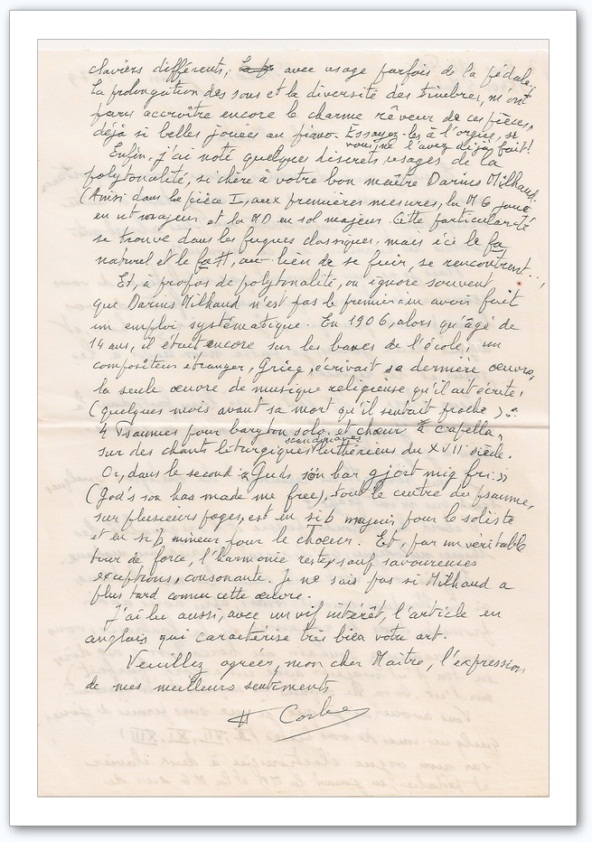 claviers différents, avec usage parfois de la pédale.
La prolongation des sons et la diversité des timbres, m'ont
paru accroître encore le charme rêveur de ces pièces,
déjà si belles jouées au piano. Essayez-les à l'orgue, si
vous ne l'avez déjà fait!
Enfin, j'ai noté quelques discrets usages de la
polytonalité, si chère à votre bon maître Darius Milhaud.
(Ainsi dans la pièce I, aux premières mesures, la MG joue
en ut majeur et la MD en sol majeur. Cette particularité
se trouve dans les fugues classiques, mais ici le fa
naturel et le fa #, au lieu de se fuir, se rencontrent...)
Et, à propos de polytonalité, on ignore souvent
que Darius Milhaud n'est pas le premier à en avoir fait
un emploi systématique. En 1906, alors qu'âgé de
14 ans, il était encore sur les bancs de l'école, un
compositeur étranger, Grieg, écrivait sa dernière œuvre,
la seule œuvre de musique religieuse qu'il ait écrite,
(quelques mois avant sa mort qu'il sentait proche) :
4 Psaumes pour baryton solo et chœur a capella,
sur des chants liturgiques scandinaves luthériens du XVII siècle.
Or, dans le second "Guds sön har gjort mig fri"
(God's son has made me free), tout le centre du psaume,
sur plusieurs pages, est en si b majeur pour le soliste
et en si b mineur pour le chœur. Et, par un véritable
tour de force, l'harmonie reste, sauf savoureuses
exceptions, consonante. Je ne sais pas si Milhaud a
plus tard connu cette œuvre.
J'ai lu aussi, avec un vif intérêt, l'article en
anglais qui caractérise très bien votre art.
Veuillez agréer, mon cher Maître, l'expression
de mes meilleurs sentiments